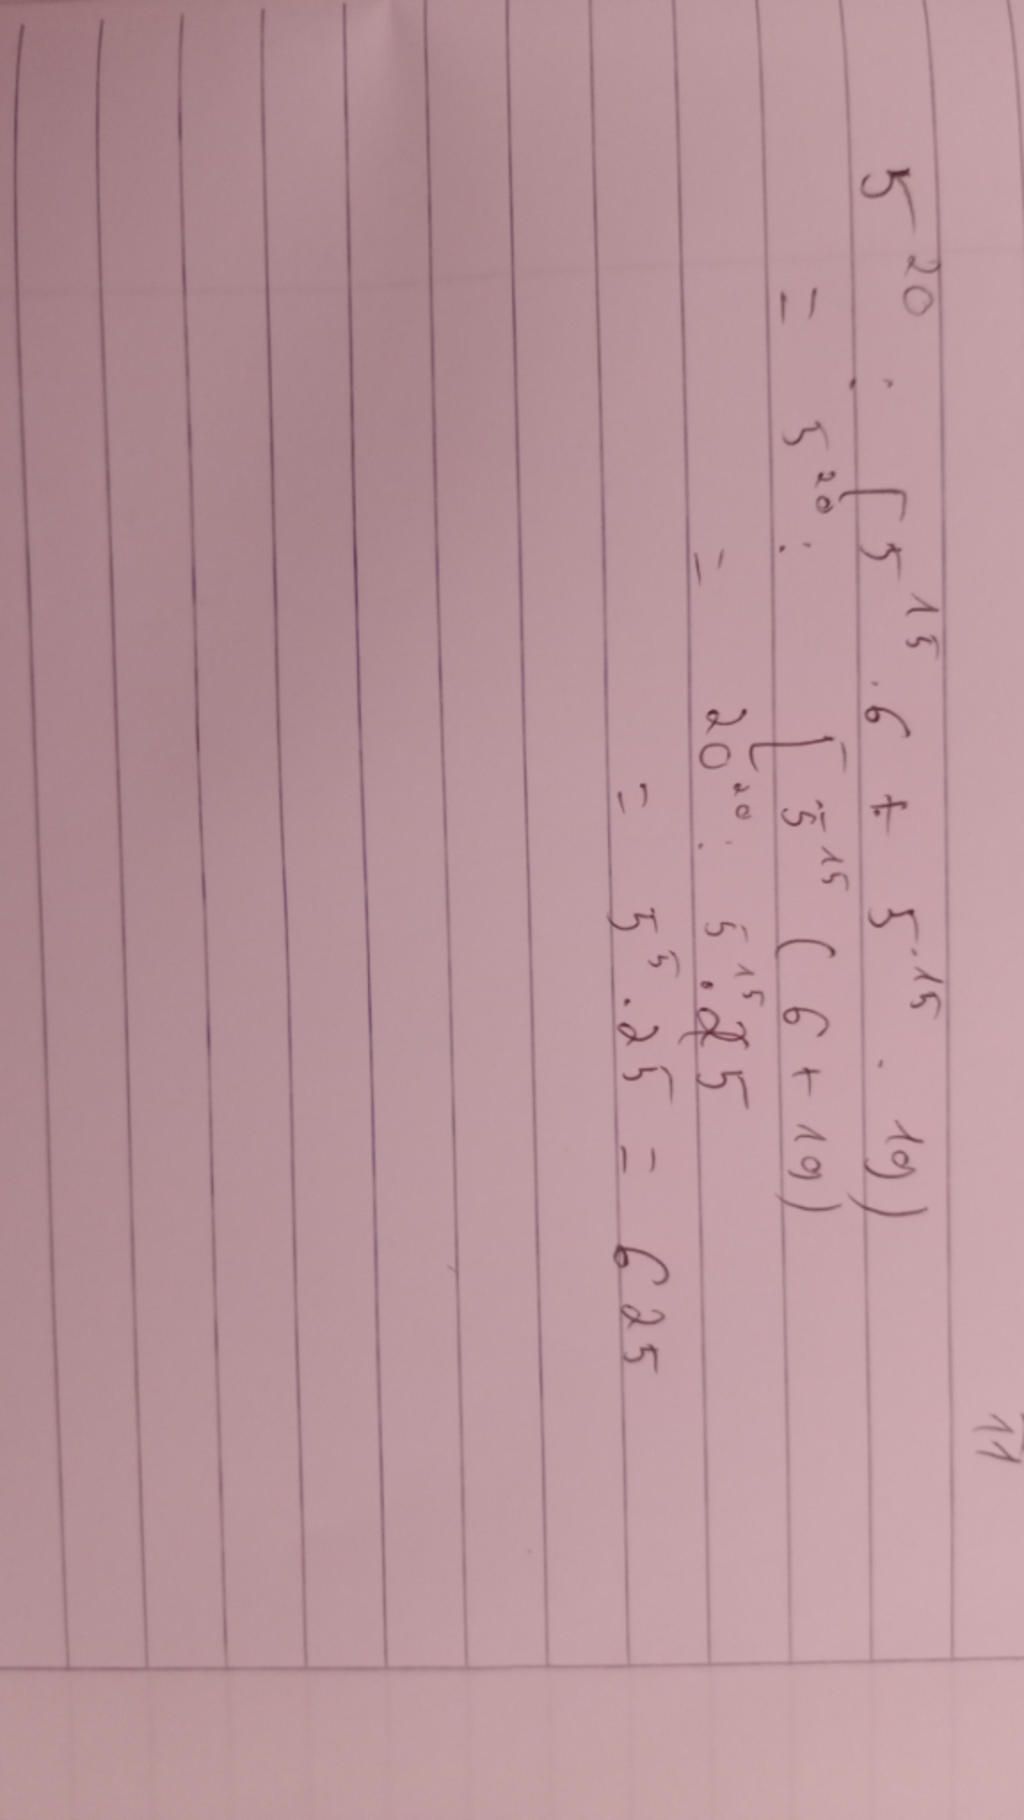 11
5²⁰ : [5¹⁵.6 + 5.¹⁵ . 19)
= 5²⁰ : [5¹⁵ (6 + 19)
= 20²⁰ : 5¹⁵.25
= 5⁵.25 = 625